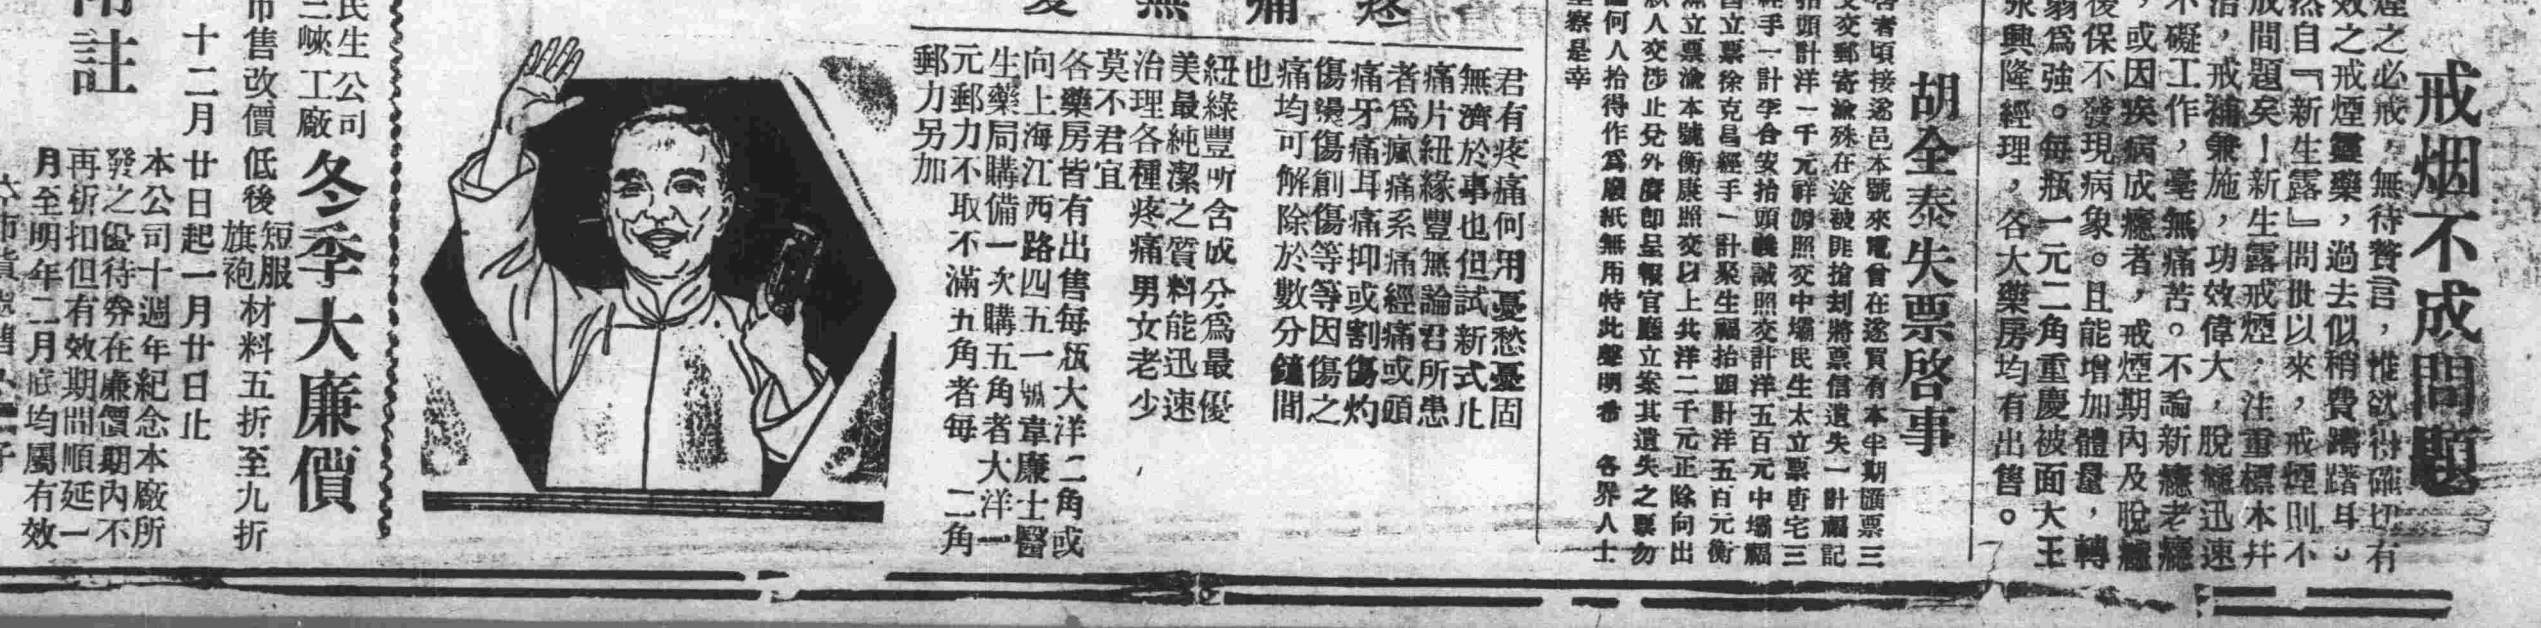 戒烟不成問題
煙之必戒，無待贅言，惟欲得確切有
效之戒煙靈藥，過去似稍費躊躇耳。
然自『新生露』問世以來，戒煙則不
成問題矣！新生露戒煙，注重標本并
治，戒補兼施，功效偉大，脫癮迅速
不礙工作，毫無痛苦。不論新癮老癮
，或因疾病成癮者，戒煙期內及脫癮
後保不發現病象。且能增加體量，轉
弱爲強。每瓶一元二角重慶被面大王
張興隆經理，各大藥房均有出售。
胡全泰失票啓事
啓者頃接遂邑本號來電曾在遂買有本半期匯票三
支交郵寄渝殊在途被匪搶刼將票信遺失一計福記
抬頭計洋一千元祥源照交中壩民生太立票唐宅三
經手一計李合安抬頭義誠照交計洋五百元中壩福
昌立票徐克昌經手一計聚生福抬頭計洋五百元衡
立票渝本號衡康照交以上共洋二千元正除向出
票人交涉止兌外廣卽呈報官廳立案其遺失之票勿
論何人拾得作爲廢紙無用特此聲明希 各界人士
鑒察是幸
疼痛無憂
君有疼痛何用憂愁憂固
無濟於事也但試新式止
痛片紐綠豐無論君所患
者爲瘋痛系痛經痛或頭
痛牙痛耳痛抑或割傷灼
傷燙傷創傷等等因傷之
痛均可解除於數分鐘間
也
紐綠豐所含成分爲最優
美最純潔之質料能迅速
治理各種疼痛男女老少
莫不君宜
各藥房皆有出售每瓶大洋二角或
向上海江西路四五一號韋廉士醫
生藥局購備一次購五角者大洋一
元郵力不取不滿五角者每 二角
郵力另加
冬季大廉價
民生公司
三峽工廠
短服
旗袍
布售改價低後 材料五折至九折
十二月廿日起一月廿日止
附註
本公司十週年紀念本廠所
發之優待券在廉價期內不
再折扣但有效期間順延一
月至明年二月底均屬有效